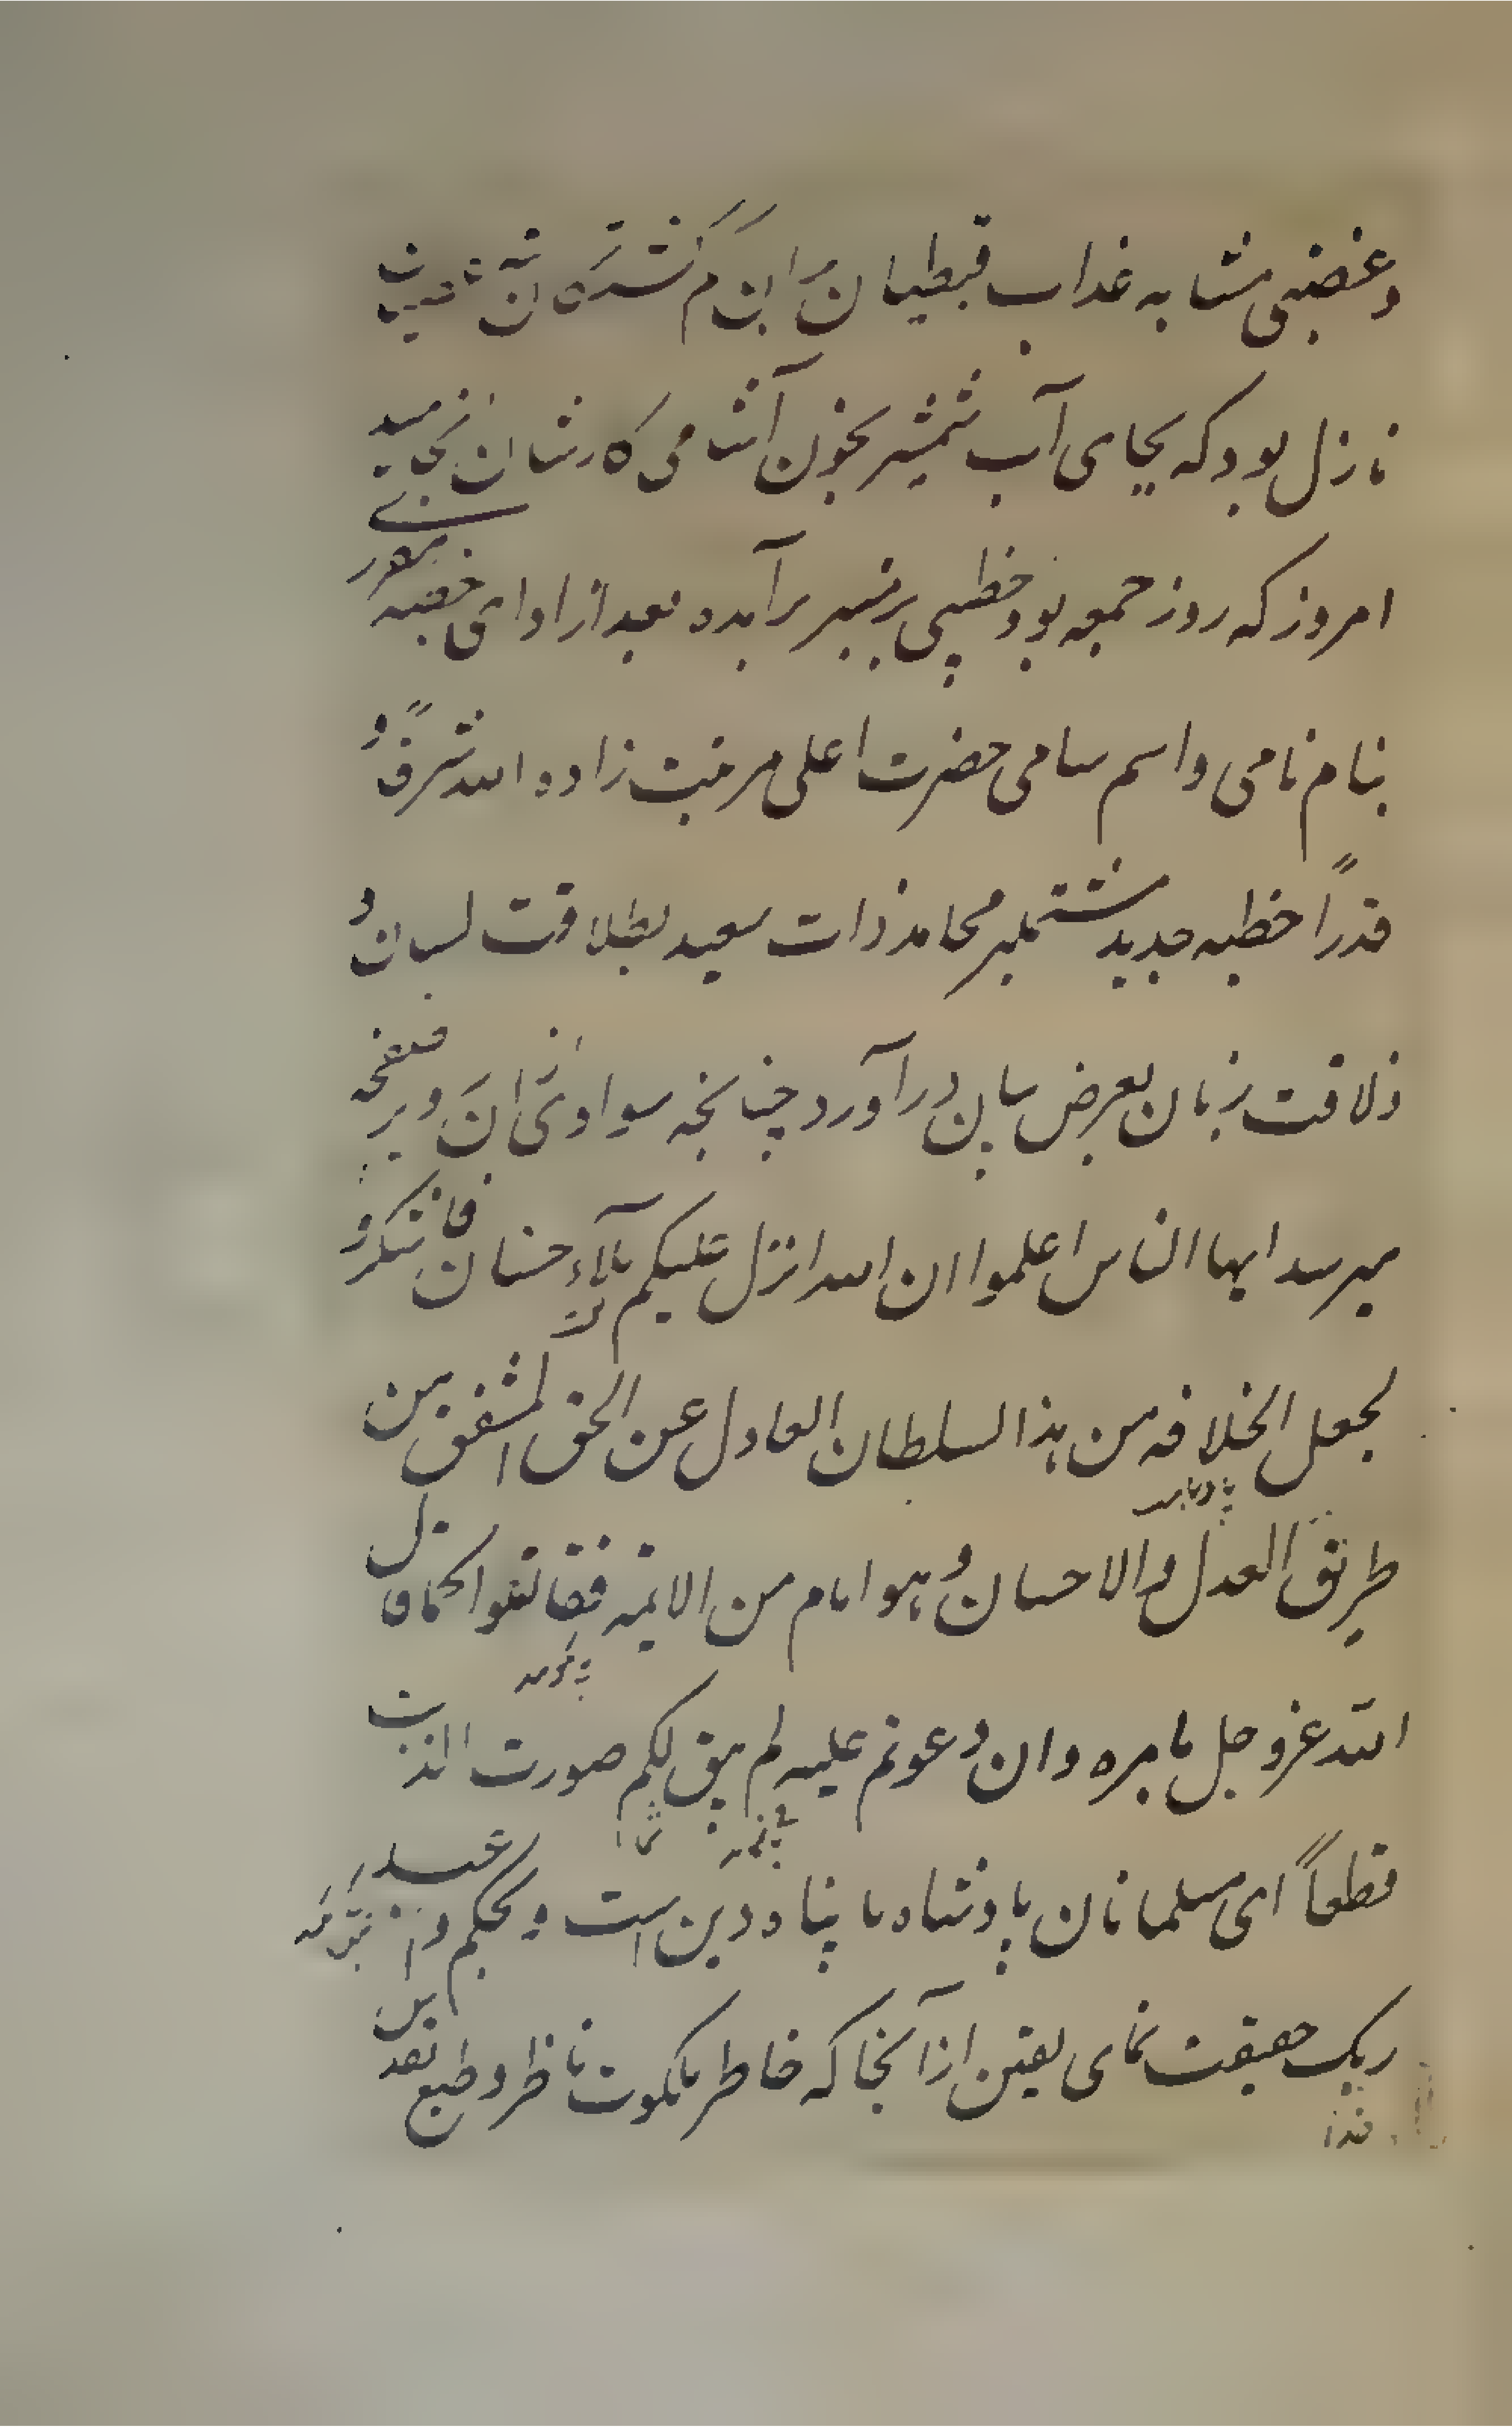 و غضبی مشابه غداب قبطیان بر این
نازل بود که بجای آب شمشیر بخون آشامی کارشان
امروز که روز جمعه بود خطیبی بر منبر برآمده بعد از ادای خطبه
بنام نامی و اسم سامی حضرت اعلی مرتبت زاده الله شرفاً و
قدراً خطبه جدید مشتملبر محامد ذات سعید بطلاقت لسان و
ذلاقت زبان بعرض بیان در آورد چنانچه سوادی از ان
میرسد ایها الناس اعلموا ان الله انزل علیکم بالاء حسنان فاشکرو
لجعل الخلافه من هذا السلطان العادل عن الحق المشفق من
طریق العدل و الاحسان و هو امام من الایمه کما قال
الله عز و جل بامره و ان دعوتم علیه لم یبق لکم صورت
قطعاً ای مسلمانان پادشاه ما پناه دین است و بحکم
ریک حقیقت نمای یقین از آنجا که خاطر ملکوت ناظر و طبع